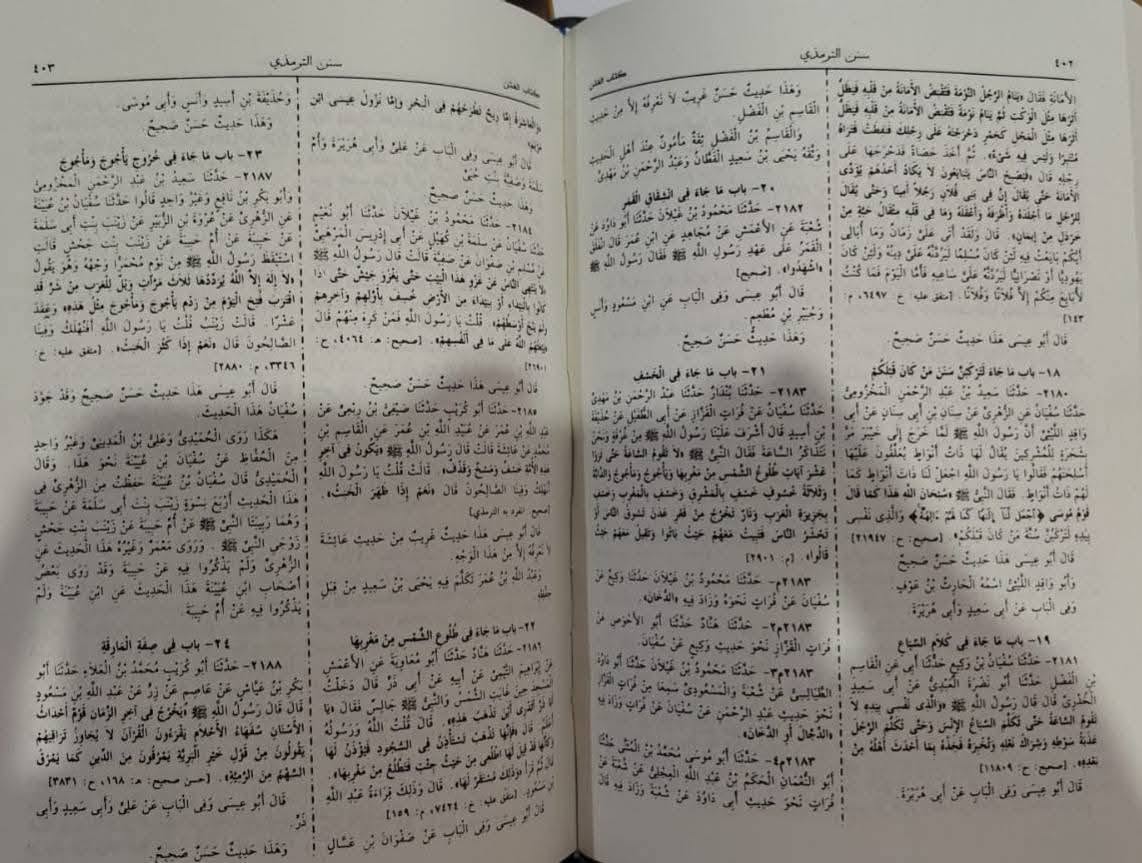 ٤٠٢
سنن الترمذي
كتاب الفتن
الأَمَانَةِ فَقَالَ «يَنَامُ الرَّجُلُ النَّوْمَةَ فَتُقْبَضُ الأَمَانَةُ مِنْ قَلْبِهِ فَيَظَلُّ
أَثَرُهَا مِثْلَ الْوَكْتِ ثُمَّ يَنَامُ نَوْمَةً فَتُقْبَضُ الأَمَانَةُ مِنْ قَلْبِهِ فَيَظَلُّ
أَثَرُهَا مِثْلَ الْمَجْلِ كَجَمْرٍ دَحْرَجْتَهُ عَلَى رِجْلِكَ فَنَفِطَتْ فَتَرَاهُ
مُنْتَبِرًا وَلَيْسَ فِيهِ شَيْءٌ». ثُمَّ أَخَذَ حَصَاةً فَدَحْرَجَهَا عَلَى
رِجْلِهِ قَالَ «فَيُصْبِحُ النَّاسُ يَتَبَايَعُونَ لاَ يَكَادُ أَحَدُهُمْ يُؤَدِّى
الأَمَانَةَ حَتَّى يُقَالَ إِنَّ فِى بَنِى فُلاَنٍ رَجُلاً أَمِينًا وَحَتَّى يُقَالَ
لِلرَّجُلِ مَا أَجْلَدَهُ وَأَظْرَفَهُ وَأَعْقَلَهُ وَمَا فِى قَلْبِهِ مِثْقَالُ حَبَّةٍ مِنْ
خَرْدَلٍ مِنْ إِيمَانٍ». قَالَ وَلَقَدْ أَتَى عَلَىَّ زَمَانٌ وَمَا أُبَالِى
أَيُّكُمْ بَايَعْتُ فِيهِ لَئِنْ كَانَ مُسْلِمًا لَيَرُدَّنَّهُ عَلَىَّ دِينُهُ وَلَئِنْ كَانَ
يَهُودِيًّا أَوْ نَصْرَانِيًّا لَيَرُدَّنَّهُ عَلَىَّ سَاعِيهِ فَأَمَّا الْيَوْمَ فَمَا كُنْتُ
لأُبَايِعَ مِنْكُمْ إِلاَّ فُلاَنًا وَفُلاَنًا. [متفق عليه: خ: ٦٤٩٧، م:
١٤٣]
قَالَ أَبُو عِيسَى هَذَا حَدِيثٌ حَسَنٌ صَحِيحٌ.
١٨- باب مَا جَاءَ لَتَرْكَبُنَّ سَنَنَ مَنْ كَانَ قَبْلَكُمْ
٢١٨٠- حَدَّثَنَا سَعِيدُ بْنُ عَبْدِ الرَّحْمَنِ الْمَخْزُومِىُّ
حَدَّثَنَا سُفْيَانُ عَنِ الزُّهْرِىِّ عَنْ سِنَانِ بْنِ أَبِى سِنَانٍ عَنْ أَبِى
وَاقِدٍ اللَّيْثِىِّ أَنَّ رَسُولَ اللَّهِ ﷺ لَمَّا خَرَجَ إِلَى خَيْبَرَ مَرَّ
بِشَجَرَةٍ لِلْمُشْرِكِينَ يُقَالُ لَهَا ذَاتُ أَنْوَاطٍ يُعَلِّقُونَ عَلَيْهَا
أَسْلِحَتَهُمْ فَقَالُوا يَا رَسُولَ اللَّهِ اجْعَلْ لَنَا ذَاتَ أَنْوَاطٍ كَمَا
لَهُمْ ذَاتُ أَنْوَاطٍ. فَقَالَ النَّبِىُّ ﷺ «سُبْحَانَ اللَّهِ هَذَا كَمَا قَالَ
قَوْمُ مُوسَى ﴿اجْعَلْ لَنَا إِلَهًا كَمَا لَهُمْ آلِهَةٌ﴾ وَالَّذِى نَفْسِى
بِيَدِهِ لَتَرْكَبُنَّ سُنَّةَ مَنْ كَانَ قَبْلَكُمْ». [صحيح: ح: ٢١٩٤٧]
قَالَ أَبُو عِيسَى هَذَا حَدِيثٌ حَسَنٌ صَحِيحٌ
وَأَبُو وَاقِدٍ اللَّيْثِىُّ اسْمُهُ الْحَارِثُ بْنُ عَوْفٍ.
وَفِى الْبَابِ عَنْ أَبِى سَعِيدٍ وَأَبِى هُرَيْرَةَ
١٩- باب مَا جَاءَ فِى كَلاَمِ السِّبَاعِ
٢١٨١- حَدَّثَنَا سُفْيَانُ بْنُ وَكِيعٍ حَدَّثَنَا أَبِى عَنِ الْقَاسِمِ
بْنِ الْفَضْلِ حَدَّثَنَا أَبُو نَضْرَةَ الْعَبْدِىُّ عَنْ أَبِى سَعِيدٍ
الْخُدْرِىِّ قَالَ قَالَ رَسُولُ اللَّهِ ﷺ «وَالَّذِى نَفْسِى بِيَدِهِ لاَ
تَقُومُ السَّاعَةُ حَتَّى تُكَلِّمَ السِّبَاعُ الإِنْسَ وَحَتَّى تُكَلِّمَ الرَّجُلَ
عَذَبَةُ سَوْطِهِ وَشِرَاكُ نَعْلِهِ وَتُخْبِرَهُ فَخِذُهُ بِمَا أَحْدَثَ أَهْلُهُ مِنْ
بَعْدِهِ». [صحيح: ح: ١١٨٠٩]
قَالَ أَبُو عِيسَى وَفِى الْبَابِ عَنْ أَبِى هُرَيْرَةَ.
وَهَذَا حَدِيثٌ حَسَنٌ غَرِيبٌ لاَ نَعْرِفُهُ إِلاَّ مِنْ حَدِيثِ
الْقَاسِمِ بْنِ الْفَضْلِ.
وَالْقَاسِمُ بْنُ الْفَضْلِ ثِقَةٌ مَأْمُونٌ عِنْدَ أَهْلِ الْحَدِيثِ
وَثَّقَهُ يَحْيَى بْنُ سَعِيدٍ الْقَطَّانُ وَعَبْدُ الرَّحْمَنِ بْنُ مَهْدِىٍّ
٢٠- باب مَا جَاءَ فِى انْشِقَاقِ الْقَمَرِ
٢١٨٢- حَدَّثَنَا مَحْمُودُ بْنُ غَيْلاَنَ حَدَّثَنَا أَبُو دَاوُدَ عَنْ
شُعْبَةَ عَنِ الأَعْمَشِ عَنْ مُجَاهِدٍ عَنِ ابْنِ عُمَرَ قَالَ انْفَلَقَ
الْقَمَرُ عَلَى عَهْدِ رَسُولِ اللَّهِ ﷺ فَقَالَ رَسُولُ اللَّهِ ﷺ
«اشْهَدُوا». [صحيح]
قَالَ أَبُو عِيسَى وَفِى الْبَابِ عَنِ ابْنِ مَسْعُودٍ وَأَنَسٍ
وَجُبَيْرِ بْنِ مُطْعِمٍ.
وَهَذَا حَدِيثٌ حَسَنٌ صَحِيحٌ.
٢١- باب مَا جَاءَ فِى الْخَسْفِ
٢١٨٣- حَدَّثَنَا بُنْدَارٌ حَدَّثَنَا عَبْدُ الرَّحْمَنِ بْنُ مَهْدِىٍّ
حَدَّثَنَا سُفْيَانُ عَنْ فُرَاتٍ الْقَزَّازِ عَنْ أَبِى الطُّفَيْلِ عَنْ حُذَيْفَةَ
بْنِ أَسِيدٍ قَالَ أَشْرَفَ عَلَيْنَا رَسُولُ اللَّهِ ﷺ مِنْ غُرْفَةٍ وَنَحْنُ
نَتَذَاكَرُ السَّاعَةَ فَقَالَ النَّبِىُّ ﷺ «لاَ تَقُومُ السَّاعَةُ حَتَّى تَرَوْا
عَشْرَ آيَاتٍ طُلُوعُ الشَّمْسِ مِنْ مَغْرِبِهَا وَيَأْجُوجُ وَمَأْجُوجُ وَالدَّابَّةُ
وَثَلاَثَةُ خُسُوفٍ خَسْفٌ بِالْمَشْرِقِ وَخَسْفٌ بِالْمَغْرِبِ وَخَسْفٌ
بِجَزِيرَةِ الْعَرَبِ وَنَارٌ تَخْرُجُ مِنْ قَعْرِ عَدَنَ تَسُوقُ النَّاسَ أَوْ
تَحْشُرُ النَّاسَ فَتَبِيتُ مَعَهُمْ حَيْثُ بَاتُوا وَتَقِيلُ مَعَهُمْ حَيْثُ
قَالُوا». [م: ٢٩٠١]
٢١٨٣م- حَدَّثَنَا مَحْمُودُ بْنُ غَيْلاَنَ حَدَّثَنَا وَكِيعٌ عَنْ
سُفْيَانَ عَنْ فُرَاتٍ نَحْوَهُ وَزَادَ فِيهِ «الدُّخَانَ».
٢١٨٣م٢- حَدَّثَنَا هَنَّادٌ حَدَّثَنَا أَبُو الأَحْوَصِ عَنْ
فُرَاتٍ الْقَزَّازِ نَحْوَ حَدِيثِ وَكِيعٍ عَنْ سُفْيَانَ.
٢١٨٣م٣- حَدَّثَنَا مَحْمُودُ بْنُ غَيْلاَنَ حَدَّثَنَا أَبُو دَاوُدَ
الطَّيَالِسِىُّ عَنْ شُعْبَةَ وَالْمَسْعُودِىُّ سَمِعَا مِنْ فُرَاتٍ الْقَزَّازِ
نَحْوَ حَدِيثِ عَبْدِ الرَّحْمَنِ عَنْ سُفْيَانَ عَنْ فُرَاتٍ وَزَادَ فِيهِ
«الدَّجَّالَ أَوِ الدُّخَانَ».
٢١٨٣م٤- حَدَّثَنَا أَبُو مُوسَى مُحَمَّدُ بْنُ الْمُثَنَّى حَدَّثَنَا
أَبُو النُّعْمَانِ الْحَكَمُ بْنُ عَبْدِ اللَّهِ الْعِجْلِىُّ عَنْ شُعْبَةَ عَنْ
فُرَاتٍ نَحْوَ حَدِيثِ أَبِى دَاوُدَ عَنْ شُعْبَةَ وَزَادَ فِيهِ قَالَ
كتاب الفتن
سنن الترمذي
٤٠٣
«وَالْعَاشِرَةُ إِمَّا رِيحٌ تَطْرَحُهُمْ فِى الْبَحْرِ وَإِمَّا نُزُولُ عِيسَى ابْنِ
مَرْيَمَ».
قَالَ أَبُو عِيسَى وَفِى الْبَابِ عَنْ عَلِىٍّ وَأَبِى هُرَيْرَةَ وَأُمِّ
سَلَمَةَ وَصَفِيَّةَ بِنْتِ حُيَىٍّ
وَهَذَا حَدِيثٌ حَسَنٌ صَحِيحٌ
٢١٨٤- حَدَّثَنَا مَحْمُودُ بْنُ غَيْلاَنَ حَدَّثَنَا أَبُو نُعَيْمٍ
حَدَّثَنَا سُفْيَانُ عَنْ سَلَمَةَ بْنِ كُهَيْلٍ عَنْ أَبِى إِدْرِيسَ الْمُرْهِبِىِّ
عَنْ مُسْلِمِ بْنِ صَفْوَانَ عَنْ صَفِيَّةَ قَالَتْ قَالَ رَسُولُ اللَّهِ ﷺ
«لاَ يَنْتَهِى النَّاسُ عَنْ غَزْوِ هَذَا الْبَيْتِ حَتَّى يَغْزُوَ جَيْشٌ حَتَّى إِذَا
كَانُوا بِالْبَيْدَاءِ أَوْ بِبَيْدَاءَ مِنَ الأَرْضِ خُسِفَ بِأَوَّلِهِمْ وَآخِرِهِمْ
وَلَمْ يَنْجُ أَوْسَطُهُمْ». قُلْتُ يَا رَسُولَ اللَّهِ فَمَنْ كَرِهَ مِنْهُمْ قَالَ
«يَبْعَثُهُمُ اللَّهُ عَلَى مَا فِى أَنْفُسِهِمْ». [صحيح: هـ: ٤٠٦٤، ح:
٢٦٩٠١]
قَالَ أَبُو عِيسَى هَذَا حَدِيثٌ حَسَنٌ صَحِيحٌ.
٢١٨٥- حَدَّثَنَا أَبُو كُرَيْبٍ حَدَّثَنَا صَيْفِىُّ بْنُ رِبْعِىٍّ عَنْ
عَبْدِ اللَّهِ بْنِ عُمَرَ عَنْ عُبَيْدِ اللَّهِ بْنِ عُمَرَ عَنِ الْقَاسِمِ بْنِ
مُحَمَّدٍ عَنْ عَائِشَةَ قَالَتْ قَالَ رَسُولُ اللَّهِ ﷺ «يَكُونُ فِى آخِرِ
هَذِهِ الأُمَّةِ خَسْفٌ وَمَسْخٌ وَقَذْفٌ». قَالَتْ قُلْتُ يَا رَسُولَ اللَّهِ
أَنَهْلِكُ وَفِينَا الصَّالِحُونَ قَالَ «نَعَمْ إِذَا ظَهَرَ الْخَبَثُ».
[صحيح: انفرد به الترمذي]
قَالَ أَبُو عِيسَى هَذَا حَدِيثٌ غَرِيبٌ مِنْ حَدِيثِ عَائِشَةَ
لاَ نَعْرِفُهُ إِلاَّ مِنْ هَذَا الْوَجْهِ.
وَعَبْدُ اللَّهِ بْنُ عُمَرَ تَكَلَّمَ فِيهِ يَحْيَى بْنُ سَعِيدٍ مِنْ قِبَلِ
حِفْظِهِ
٢٢- باب مَا جَاءَ فِى طُلُوعِ الشَّمْسِ مِنْ مَغْرِبِهَا
٢١٨٦- حَدَّثَنَا هَنَّادٌ حَدَّثَنَا أَبُو مُعَاوِيَةَ عَنِ الأَعْمَشِ
عَنْ إِبْرَاهِيمَ التَّيْمِىِّ عَنْ أَبِيهِ عَنْ أَبِى ذَرٍّ قَالَ دَخَلْتُ
الْمَسْجِدَ حِينَ غَابَتِ الشَّمْسُ وَالنَّبِىُّ ﷺ جَالِسٌ فَقَالَ «يَا
أَبَا ذَرٍّ أَتَدْرِى أَيْنَ تَذْهَبُ هَذِهِ». قَالَ قُلْتُ اللَّهُ وَرَسُولُهُ
أَعْلَمُ. قَالَ «فَإِنَّهَا تَذْهَبُ تَسْتَأْذِنُ فِى السُّجُودِ فَيُؤْذَنُ لَهَا
وَكَأَنَّهَا قَدْ قِيلَ لَهَا اطْلُعِى مِنْ حَيْثُ جِئْتِ فَتَطْلُعُ مِنْ مَغْرِبِهَا».
قَالَ ثُمَّ قَرَأَ «وَذَلِكَ مُسْتَقَرٌّ لَهَا». قَالَ وَذَلِكَ قِرَاءَةُ عَبْدِ اللَّهِ
بْنِ مَسْعُودٍ. [متفق عليه: خ: ٧٤٢٤، م: ١٥٩]
قَالَ أَبُو عِيسَى وَفِى الْبَابِ عَنْ صَفْوَانَ بْنِ عَسَّالٍ
وَحُذَيْفَةَ بْنِ أَسِيدٍ وَأَنَسٍ وَأَبِى مُوسَى.
وَهَذَا حَدِيثٌ حَسَنٌ صَحِيحٌ.
٢٣- باب مَا جَاءَ فِى خُرُوجِ يَأْجُوجَ وَمَأْجُوجَ
٢١٨٧- حَدَّثَنَا سَعِيدُ بْنُ عَبْدِ الرَّحْمَنِ الْمَخْزُومِىُّ
وَأَبُو بَكْرِ بْنُ نَافِعٍ وَغَيْرُ وَاحِدٍ قَالُوا حَدَّثَنَا سُفْيَانُ بْنُ عُيَيْنَةَ
عَنِ الزُّهْرِىِّ عَنْ عُرْوَةَ بْنِ الزُّبَيْرِ عَنْ زَيْنَبَ بِنْتِ أَبِى سَلَمَةَ
عَنْ حَبِيبَةَ عَنْ أُمِّ حَبِيبَةَ عَنْ زَيْنَبَ بِنْتِ جَحْشٍ قَالَتِ
اسْتَيْقَظَ رَسُولُ اللَّهِ ﷺ مِنْ نَوْمٍ مُحْمَرًّا وَجْهُهُ وَهُوَ يَقُولُ
«لاَ إِلَهَ إِلاَّ اللَّهُ يُرَدِّدُهَا ثَلاَثَ مَرَّاتٍ وَيْلٌ لِلْعَرَبِ مِنْ شَرٍّ قَدِ
اقْتَرَبَ فُتِحَ الْيَوْمَ مِنْ رَدْمِ يَأْجُوجَ وَمَأْجُوجَ مِثْلُ هَذِهِ» وَعَقَدَ
عَشْرًا. قَالَتْ زَيْنَبُ قُلْتُ يَا رَسُولَ اللَّهِ أَفَنَهْلِكُ وَفِينَا
الصَّالِحُونَ قَالَ «نَعَمْ إِذَا كَثُرَ الْخَبَثُ». [متفق عليه: خ:
٣٣٤٦، م: ٢٨٨٠]
قَالَ أَبُو عِيسَى هَذَا حَدِيثٌ حَسَنٌ صَحِيحٌ وَقَدْ جَوَّدَ
سُفْيَانُ هَذَا الْحَدِيثَ.
هَكَذَا رَوَى الْحُمَيْدِىُّ وَعَلِىُّ بْنُ الْمَدِينِىِّ وَغَيْرُ وَاحِدٍ
مِنَ الْحُفَّاظِ عَنْ سُفْيَانَ بْنِ عُيَيْنَةَ نَحْوَ هَذَا. وَقَالَ
الْحُمَيْدِىُّ قَالَ سُفْيَانُ بْنُ عُيَيْنَةَ حَفِظْتُ مِنَ الزُّهْرِىِّ فِى
هَذَا الْحَدِيثِ أَرْبَعَ نِسْوَةٍ زَيْنَبَ بِنْتَ أَبِى سَلَمَةَ عَنْ حَبِيبَةَ
وَهُمَا رَبِيبَتَا النَّبِىِّ ﷺ عَنْ أُمِّ حَبِيبَةَ عَنْ زَيْنَبَ بِنْتِ جَحْشٍ
زَوْجَىِ النَّبِىِّ ﷺ. وَرَوَى مَعْمَرٌ وَغَيْرُهُ هَذَا الْحَدِيثَ عَنِ
الزُّهْرِىِّ وَلَمْ يَذْكُرُوا فِيهِ عَنْ حَبِيبَةَ وَقَدْ رَوَى بَعْضُ
أَصْحَابِ ابْنِ عُيَيْنَةَ هَذَا الْحَدِيثَ عَنِ ابْنِ عُيَيْنَةَ وَلَمْ
يَذْكُرُوا فِيهِ عَنْ أُمِّ حَبِيبَةَ
٢٤- باب فِى صِفَةِ الْمَارِقَةِ
٢١٨٨- حَدَّثَنَا أَبُو كُرَيْبٍ مُحَمَّدُ بْنُ الْعَلاَءِ حَدَّثَنَا أَبُو
بَكْرِ بْنُ عَيَّاشٍ عَنْ عَاصِمٍ عَنْ زِرٍّ عَنْ عَبْدِ اللَّهِ بْنِ مَسْعُودٍ
قَالَ قَالَ رَسُولُ اللَّهِ ﷺ «يَخْرُجُ فِى آخِرِ الزَّمَانِ قَوْمٌ أَحْدَاثُ
الأَسْنَانِ سُفَهَاءُ الأَحْلاَمِ يَقْرَءُونَ الْقُرْآنَ لاَ يُجَاوِزُ تَرَاقِيَهُمْ
يَقُولُونَ مِنْ قَوْلِ خَيْرِ الْبَرِيَّةِ يَمْرُقُونَ مِنَ الدِّينِ كَمَا يَمْرُقُ
السَّهْمُ مِنَ الرَّمِيَّةِ». [حسن صحيح: هـ: ١٦٨، ح: ٣٨٣١]
قَالَ أَبُو عِيسَى وَفِى الْبَابِ عَنْ عَلِىٍّ وَأَبِى سَعِيدٍ وَأَبِى
ذَرٍّ.
وَهَذَا حَدِيثٌ حَسَنٌ صَحِيحٌ.